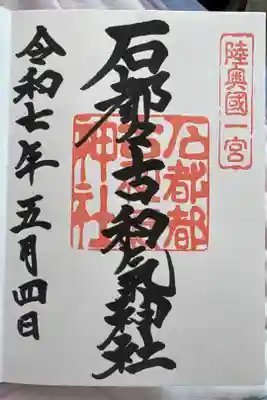 陸奥國一宮
石都々古和気神社
石都都
古和気
神社
令和七年五月四日